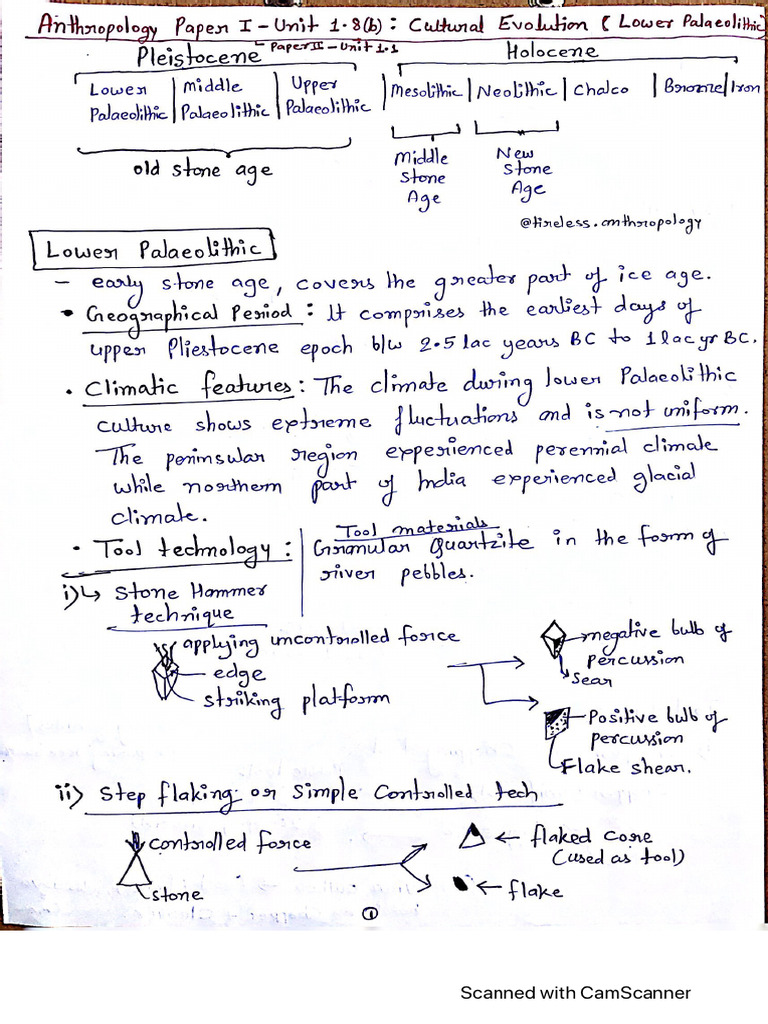 Anthropology Paper I - Unit 1.8(b) : Cultural Evolution (Lower Palaeolithic)
Paper II - Unit 1.1
Pleistocene Holocene
Lower Palaeolithic | Middle Palaeolithic | Upper Palaeolithic | Mesolithic | Neolithic | Chalco | Bronze | Iron
old stone age
Middle Stone Age
New Stone Age
@tireless.anthropology
Lower Palaeolithic
- early stone age, covers the greater part of ice age.
• Geographical Period : It comprises the earliest days of
upper Pliestocene epoch b/w 2.5 lac years BC to 1 lac yr BC.
• Climatic features : The climate during lower Palaeolithic
culture shows extreme fluctuations and is not uniform.
The peninsular region experienced perennial climate
while northern part of India experienced glacial
climate.
• Tool technology :
Tool materials
Granular Quartzite in the form of
river pebbles.
i) ↳ Stone Hammer
technique
applying uncontrolled force
edge
striking platform
negative bulb of
percussion
scar
Positive bulb of
percussion
Flake shear.
ii) Step flaking or Simple Controlled tech
controlled force
stone
← flaked core
(used as tool)
← flake
1
Scanned with CamScanner